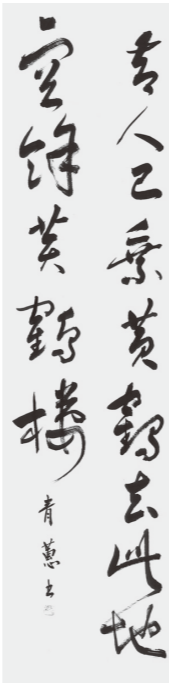 昔人已乘黄鶴去此地
空餘黄鶴楼
青蕙書